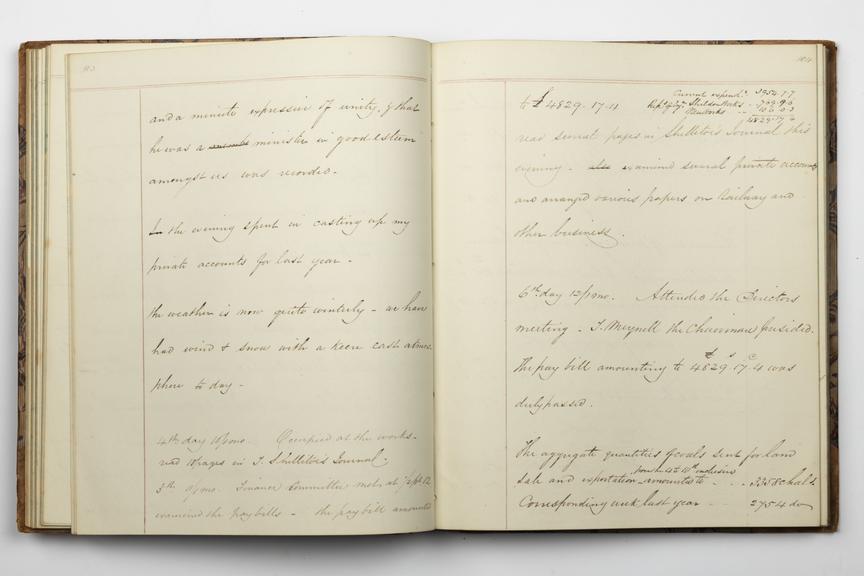 103
and a minute expressive of unity, & that
he was a minister in good esteem
amongst us was recorded.
In the evening spent in casting up my
private accounts for last year.
The weather is now quite winterly - we have
had wind & snow with a keen cast atmos
phere to day -
4th day 10/1mo. Occupied at the works -
read 10 pages in T. Shillitoe's Journal.
5th 11/1mo. Finance Committee met at 1/2 pt 12
examined the pay bills - the pay bill amounted
104
to £4829.17.11
Current expend.
Shildon Works
New Works
4829.17
read several pages in Shillitoe's Journal this
evening. also examined several private accounts
and arranged various papers on Railway and
other business.
6th day 12/1mo. Attended the Directors
meeting - T. Meynell the Chairman presided.
The pay bill amounting to £4829.17.4 was
duly passed.
The aggregate quantities of coals sent for land
sale and exportation from the 4th to 10th inclusive amounts to - - - 3358 chald
Corresponding week last year - - 2754 do